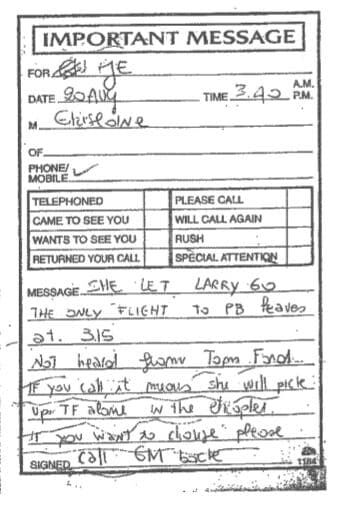 IMPORTANT MESSAGE
FOR JE
A.M.
DATE 20 Aug TIME 3.40 P.M.
M
OF
PHONE/
MOBILE
TELEPHONED PLEASE CALL
CAME TO SEE YOU WILL CALL AGAIN
WANTS TO SEE YOU RUSH
RETURNED YOUR CALL SPECIAL ATTENTION
MESSAGE SHE LET LARRY GO
THE ONLY FLIGHT TO PB leaves
at. 3.15
Not heard from Tom Ford..
IF you call it means she will pick
up TF alone in the
if you want to change please
SIGNED call GM back
1184